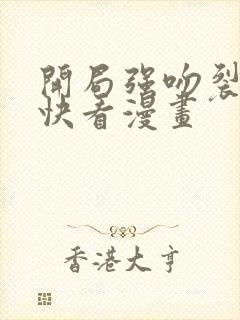 開局強吻裂
快看漫畫
香港大亨